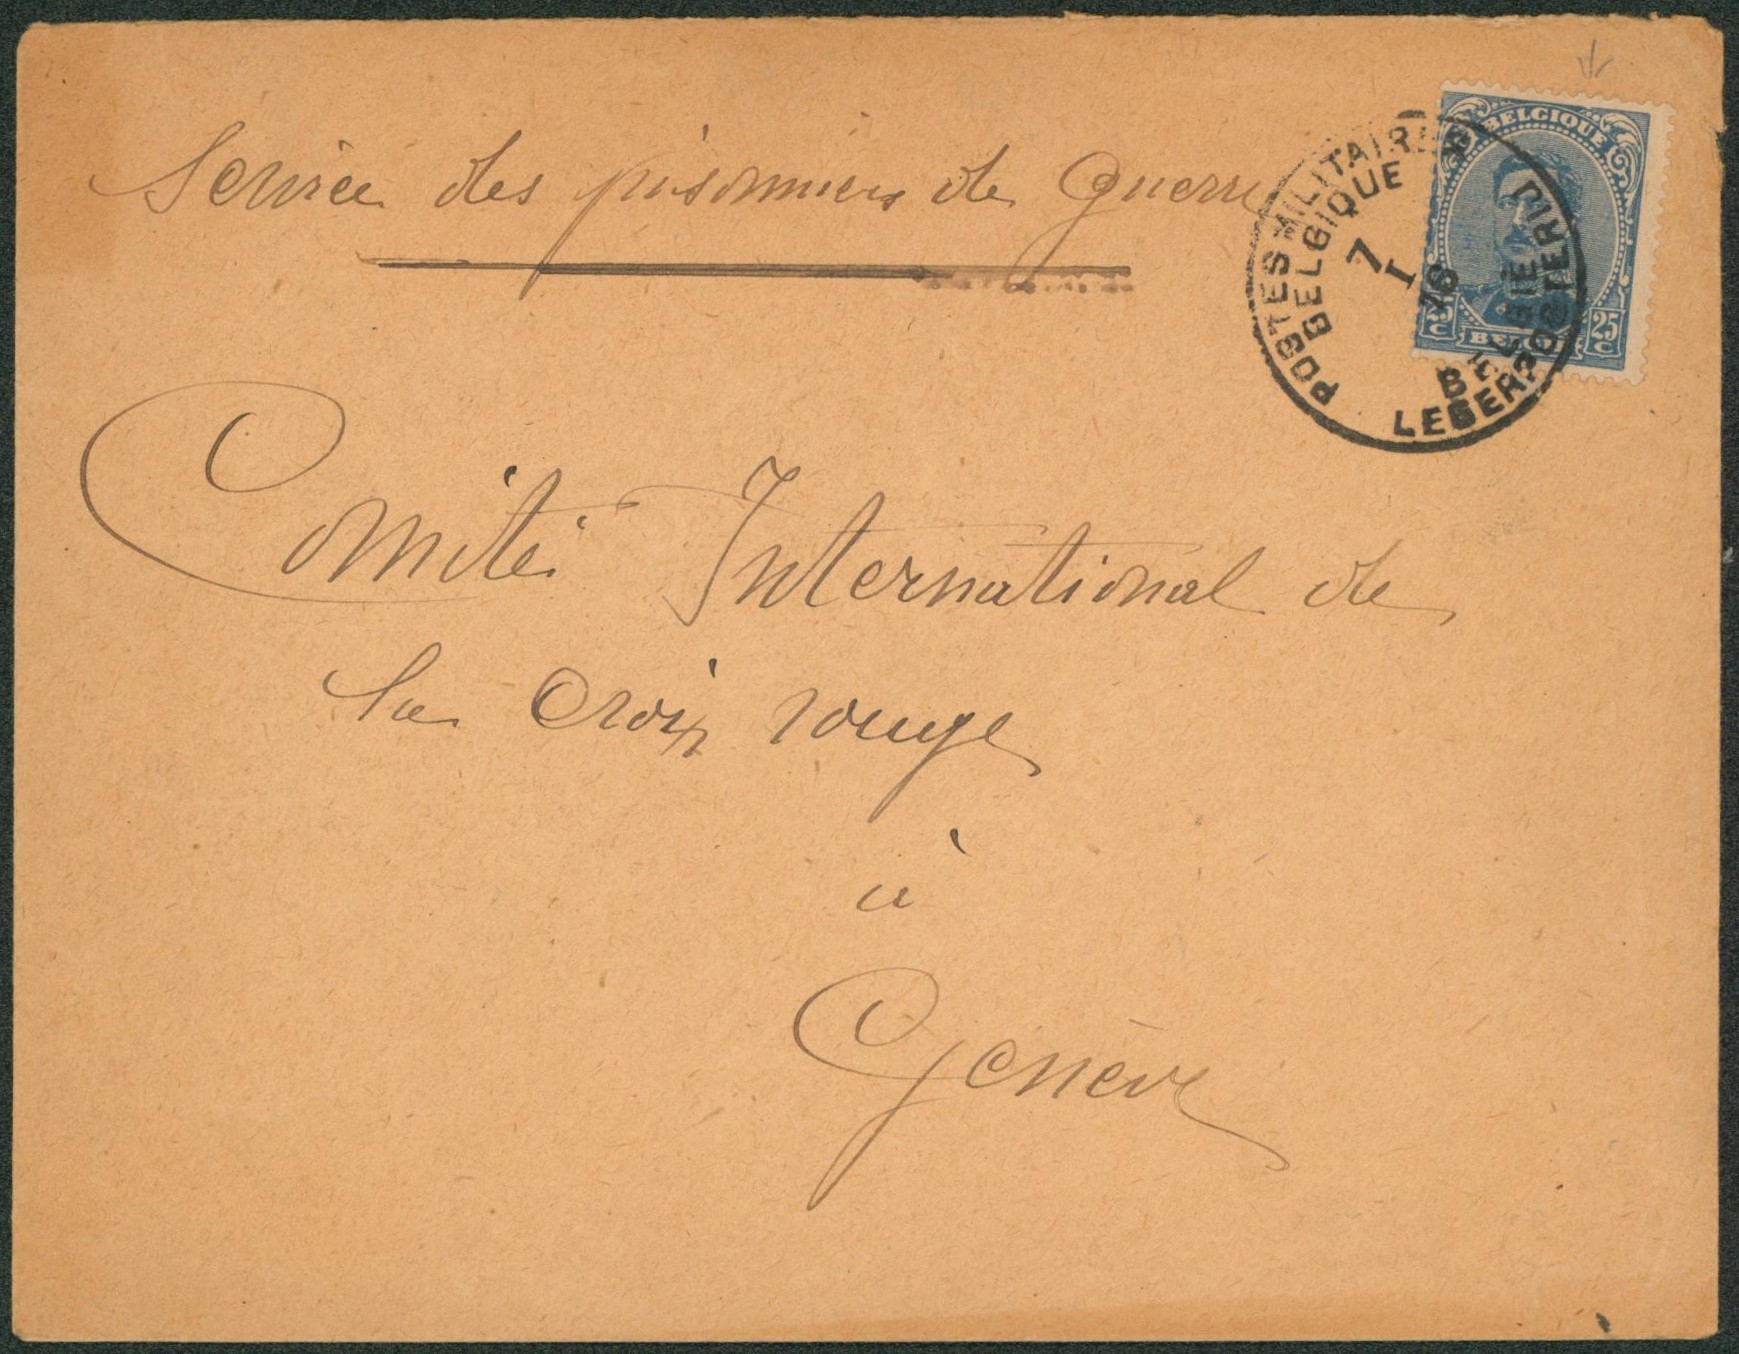 Service des prisonniers de Guerre
BELGIQUE
25 C
25 C
BELGIË
POSTES MILITAIRES
BELGIQUE
7
I
18
BELGIE
LEGERPOSTERIJ
Comité International de
la Croix rouge
à
Genève